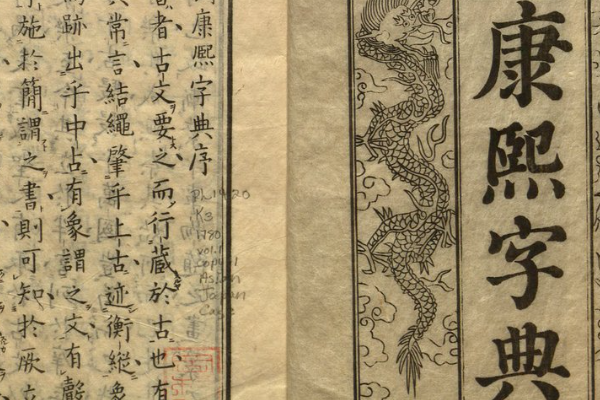 康熙字典
康熙字典序
者古文要之而行蔵於古也有
常言結繩肇乎上古迹衡縱象
跡出乎中占有象謂之文有聲
施於簡謂之書則可知於厥
PL1420
K3
1780
vol.1
copy 1
Asian
Japan
Case